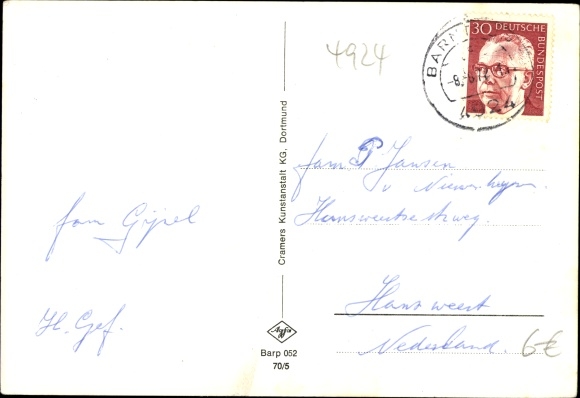 4924
30 DEUTSCHE
BUNDESPOST
BARNT
4924
Cramers Kunstanstalt KG, Dortmund
fam P Jansen
v
fam Gijsel
Hansweert
H. Gef.
Nederland.
6€
Agfa
Barp 052
70/5